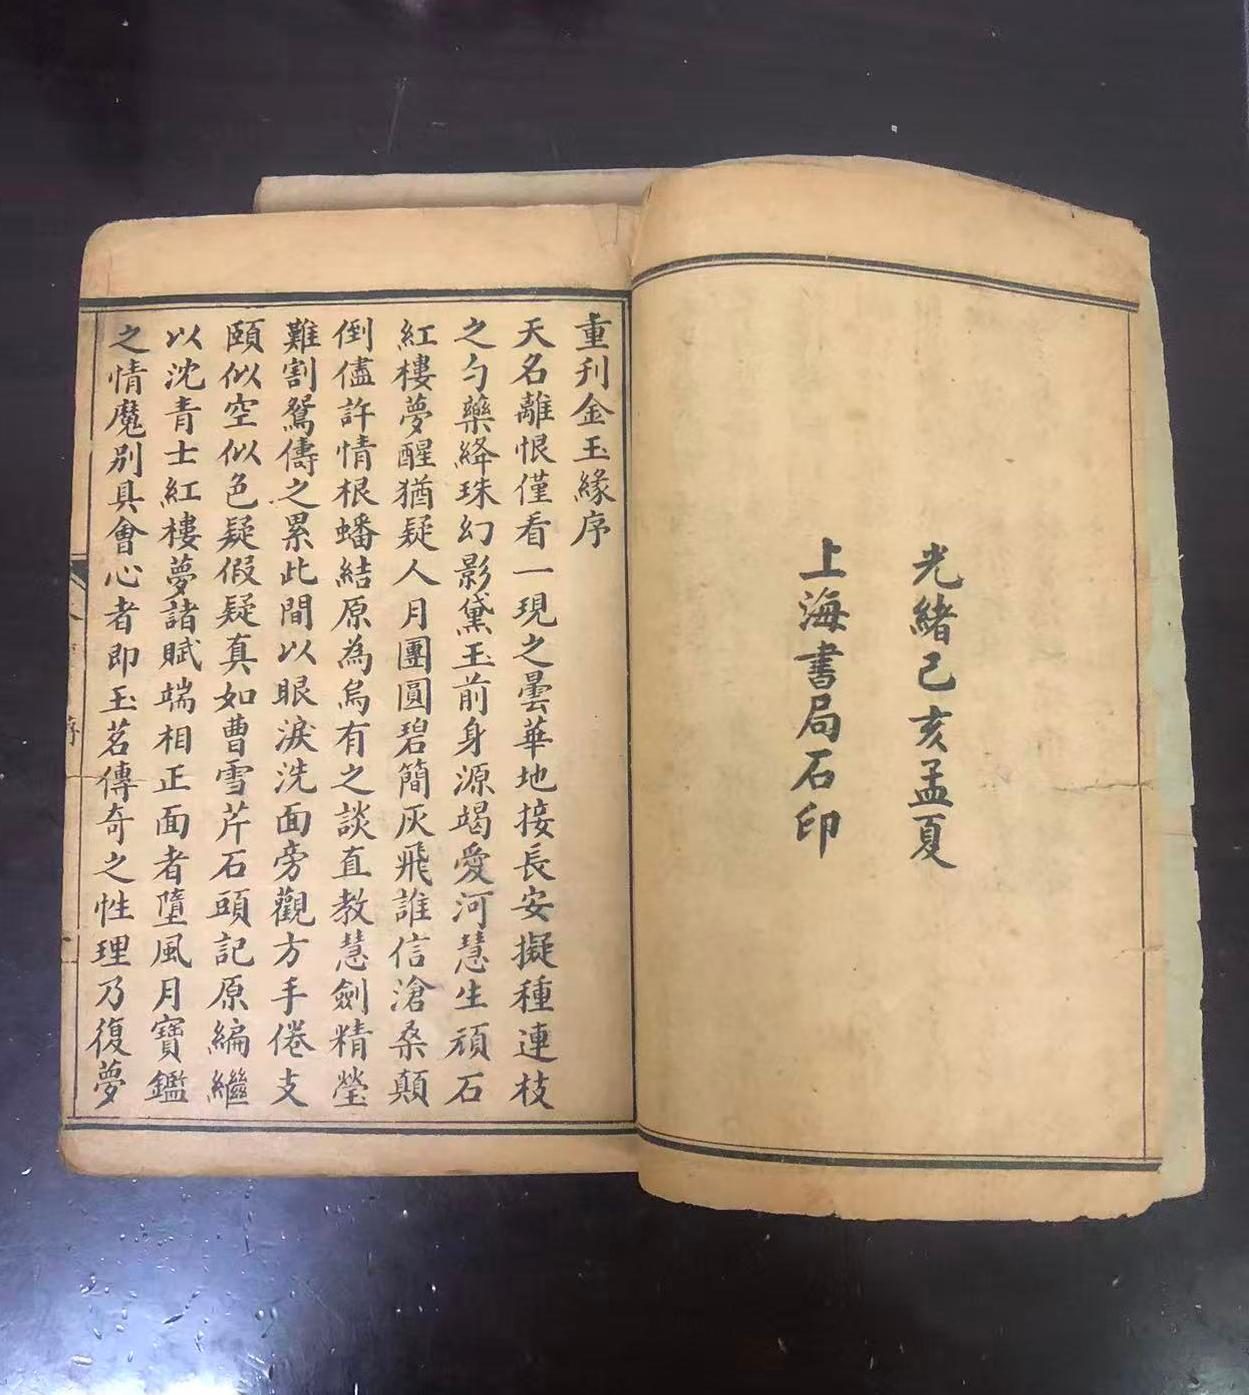 光緒己亥孟夏
上海書局石印
重刋金玉緣序
天名離恨僅看一現之曇華地接長安擬種連枝
之勺藥絳珠幻影黛玉前身源竭愛河慧生頑石
紅樓夢醒猶疑人月團圓碧簡灰飛誰信滄桑顛
倒儘許情根蟠結原為烏有之談直教慧劍精瑩
難割鴛儔之累此間以眼淚洗面旁觀方手倦支
頤似空似色疑假疑真如曹雪芹石頭記原編繼
以沈青士紅樓夢諸賦端相正面者墮風月寶鑑
之情魔別具會心者即玉茗傳奇之性理乃復夢
序